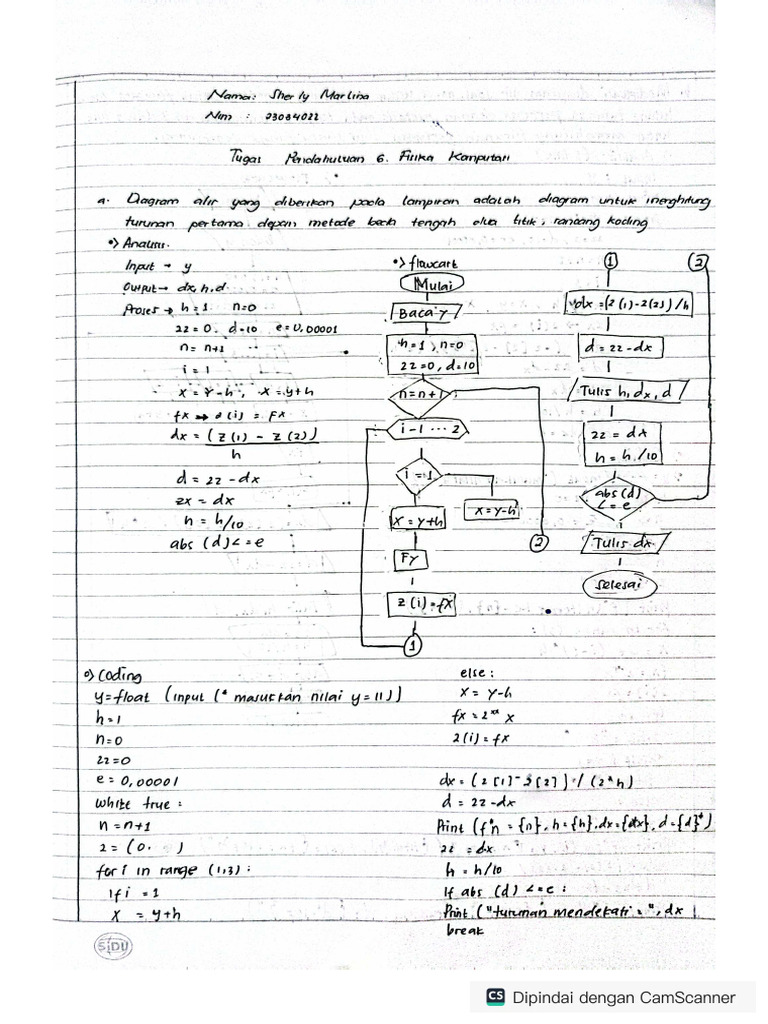 Nama: Sherly Marlina
Nim : 23034022
Tugas Pendahuluan 6. Fisika Komputasi
a. Diagram alir yang diberikan pada lampiran adalah diagram untuk menghitung
turunan pertama depan metode beda tengah dua titik, rancang koding
•> Analisis.
Input → y
Output → dx, h, d
Proses → h = 1 n=0
zz = 0. d=10 e = 0,00001
n = n+1
i = 1
x = Y-h, x = y+h
fx → z(i) = Fx
dx = (z(1) - z(2))
h
d = zz - dx
zx = dx
h = h/10
abs (d) <= e
•> flowcart
Mulai
Baca Y
h=1, n=0
zz=0, d=10
n=n+1
i-1 ... 2
i = 1
X = y+h
x = y-h
Fy
z(i) = fx
1
2
1
2
dx = (z(1)-z(2))/h
d = zz - dx
Tulis h, dx, d
zz = dx
h = h/10
abs(d)
<= e
Tulis dx
Selesai
•> Coding
y=float (input (" masukkan nilai y = "))
h=1
n=0
zz=0
e = 0,00001
while true :
n = n+1
z = (0. )
for i in range (1,3) :
if i = 1
x = y+h
else :
x = y-h
fx = 2** x
z(i) = fx
dx = (z[1] - z[2]) / (2*h)
d = zz - dx
Print (f"n = {n}, h = {h}, dx = {dx}, d = {d}")
zz = dx
h = h/10
If abs (d) <= e :
Print ("turunan mendekati = ", dx
break
SIDU
CS Dipindai dengan CamScanner